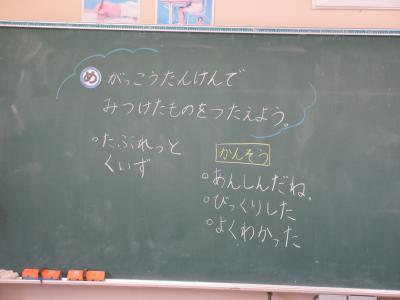 め がっこうたんけんで
みつけたものをつたえよう。
たぶれっと
くいず
かんそう
あんしんだね、
びっくりした
よくわかった